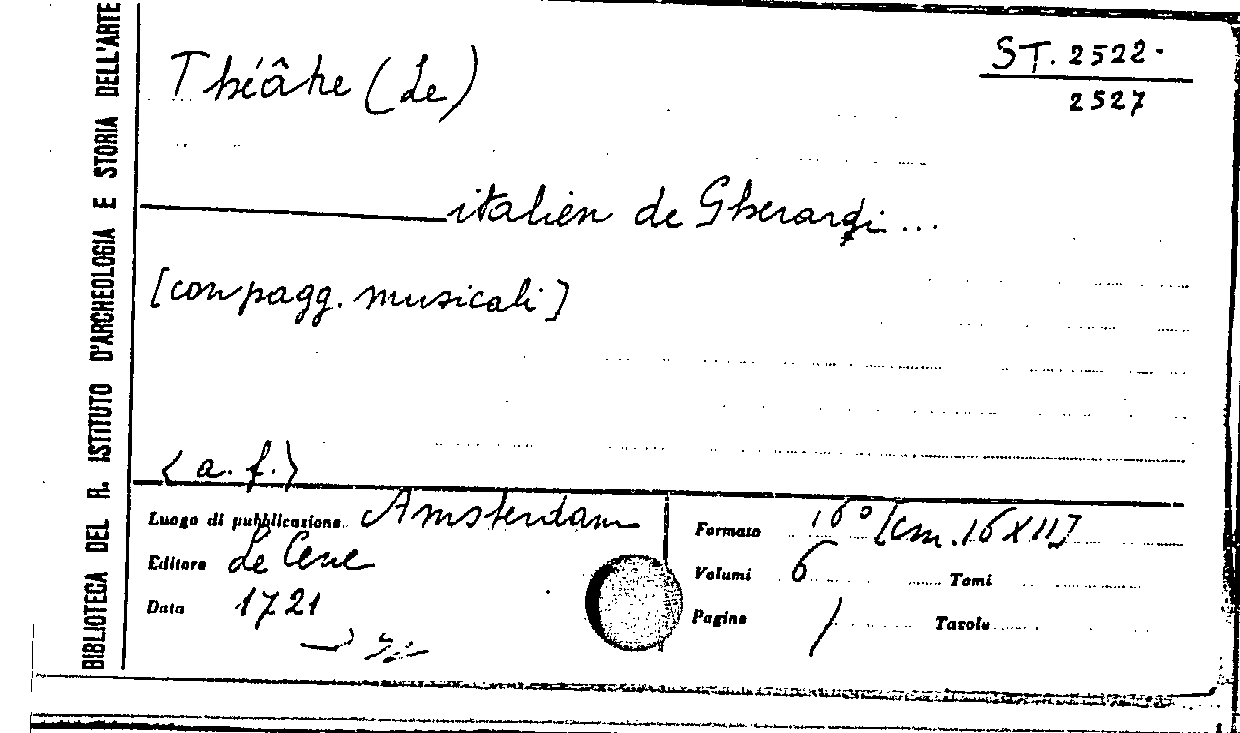 BIBLIOTECA DEL R. ISTITUTO D'ARCHEOLOGIA E STORIA DELL'ARTE
ST. 2522-
2527
Théâtre (Le)
italien de Gherardi...
[con pagg. musicali]
<a. f.>
Luogo di pubblicazione Amsterdam
Editore Le Cene
Data 1721
Formato 16° [cm. 16 X 11]
Volumi 6 Tomi
Pagine / Tavole